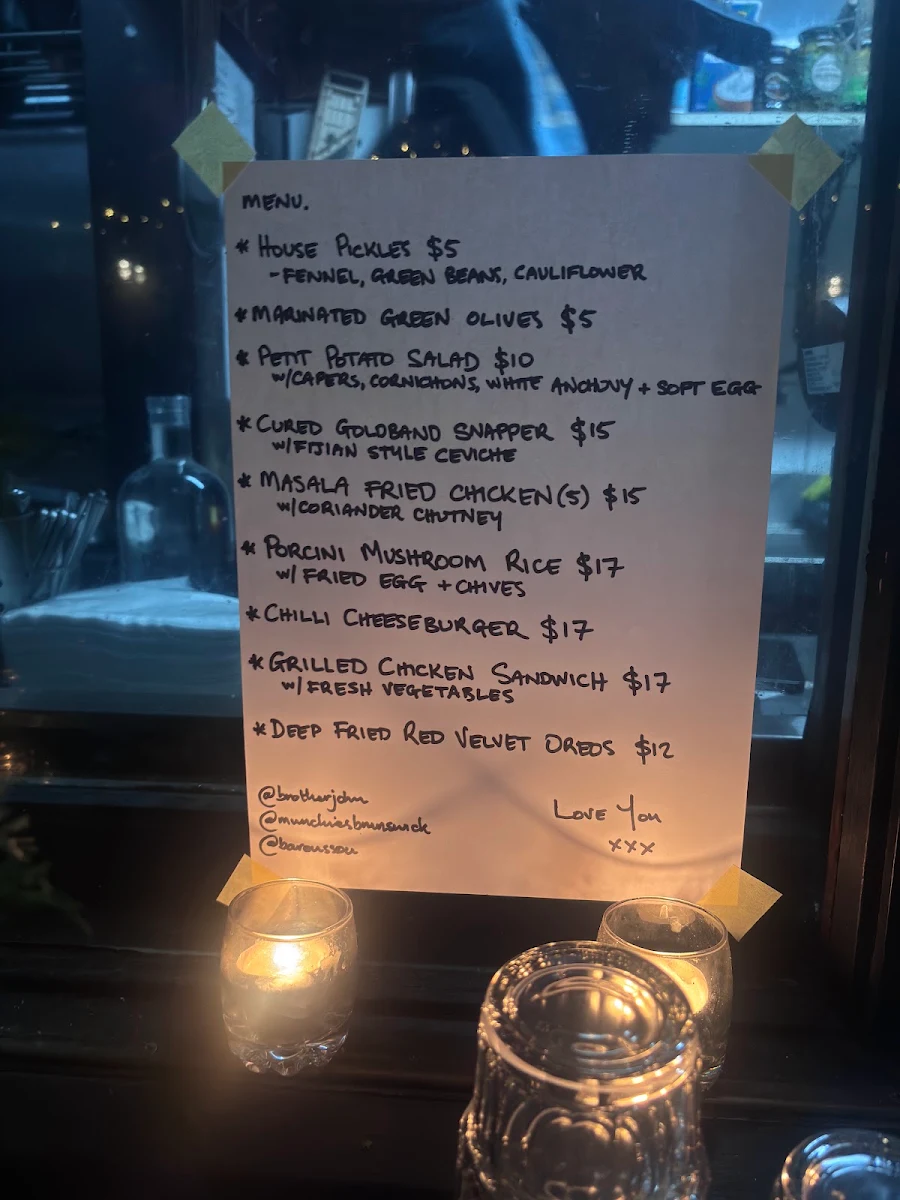 MENU.
* HOUSE PICKLES $5
- FENNEL, GREEN BEANS, CAULIFLOWER
* MARINATED GREEN OLIVES $5
* PETIT POTATO SALAD $10
w/CAPERS, CORNICHONS, WHITE ANCHOVY + SOFT EGG
* CURED GOLDBAND SNAPPER $15
w/FIJIAN STYLE CEVICHE
* MASALA FRIED CHICKEN (5) $15
w/CORIANDER CHUTNEY
* PORCINI MUSHROOM RICE $17
w/ FRIED EGG + CHIVES
* CHILLI CHEESEBURGER $17
* GRILLED CHICKEN SANDWICH $17
w/ FRESH VEGETABLES
* DEEP FRIED RED VELVET OREOS $12
@brotherjohn
@munchiesbrunswick
@baroussou
LOVE YOU
xxx